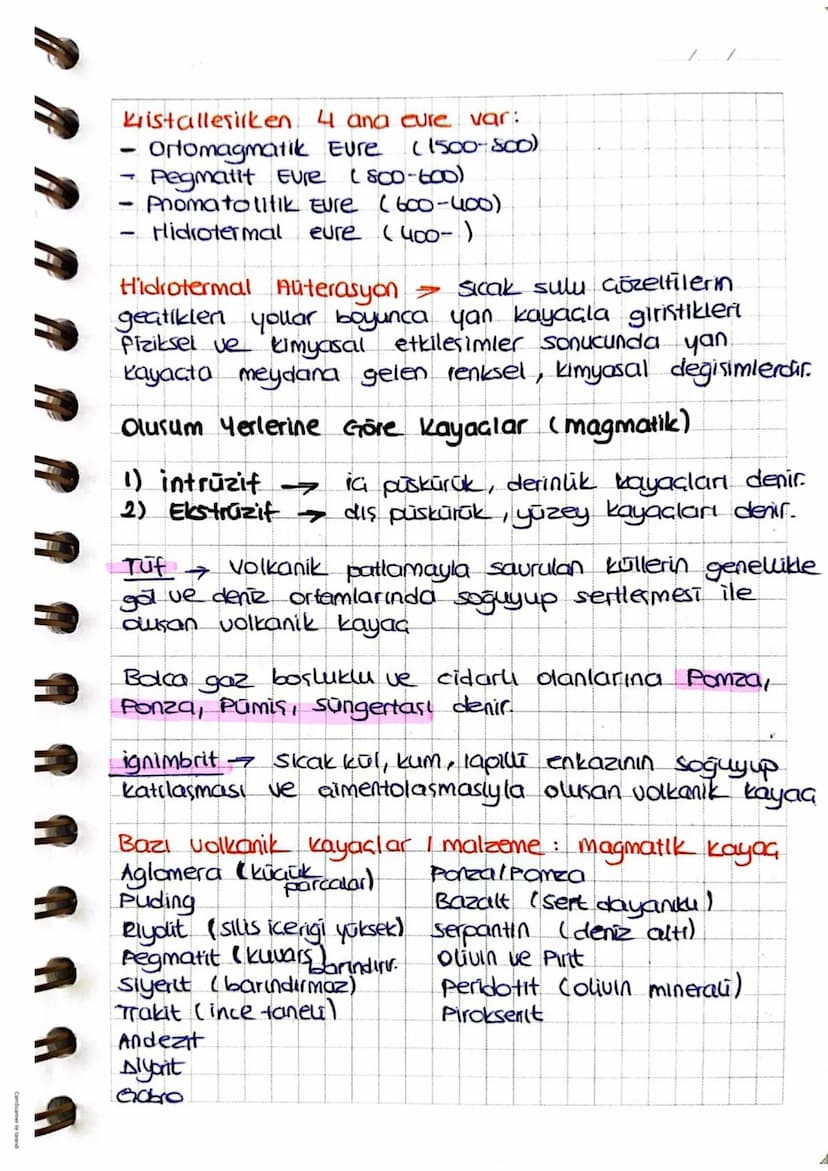 / /
Kristalleşirken 4 ana evre var:
- Ortomagmatik Evre (1500-800)
- Pegmatit Evre (800-600)
- Pnomatolitik Evre (600-400)
- Hidrotermal evre (400- )
Hidrotermal Alterasyon → sıcak sulu çözeltilerin
geçtikleri yollar boyunca yan kayaçla giriştikleri
fiziksel ve kimyasal etkileşimler sonucunda yan
kayaçta meydana gelen renksel, kimyasal değişimlerdir.
Oluşum Yerlerine Göre Kayaçlar (magmatik)
1) İntrüzif → iç püskürük, derinlik kayaçları denir.
2) Ekstrüzif → dış püskürük, yüzey kayaçları denir.
Tüf → volkanik patlamayla savrulan küllerin genellikle
göl ve deniz ortamlarında soğuyup sertleşmesi ile
oluşan volkanik kayaç
Bolca gaz boşluklu ve cidarlı olanlarına Pomza,
Ponza, Pümis, Süngertaşı denir.
ignimbrit → Sıcak kül, kum, lapilli enkazının soğuyup
katılaşması ve çimentolaşmasıyla oluşan volkanik kayaç
Bazı volkanik kayaçlar / malzeme : magmatik kayaç
Aglomera (küçük parçalar)
Puding
Riyolit (silis içeriği yüksek)
Pegmatit (kuvars) barındırır.
Siyenit (barındırmaz)
Trakit (ince taneli)
Andezit
Diyorit
Gabro
Ponza/Pomza
Bazalt (sert dayanıklı)
Serpantin (deniz altı)
Olivin ve Pirit
Peridotit (olivin minerali)
Piroksenit
CamScanner ile tarandı